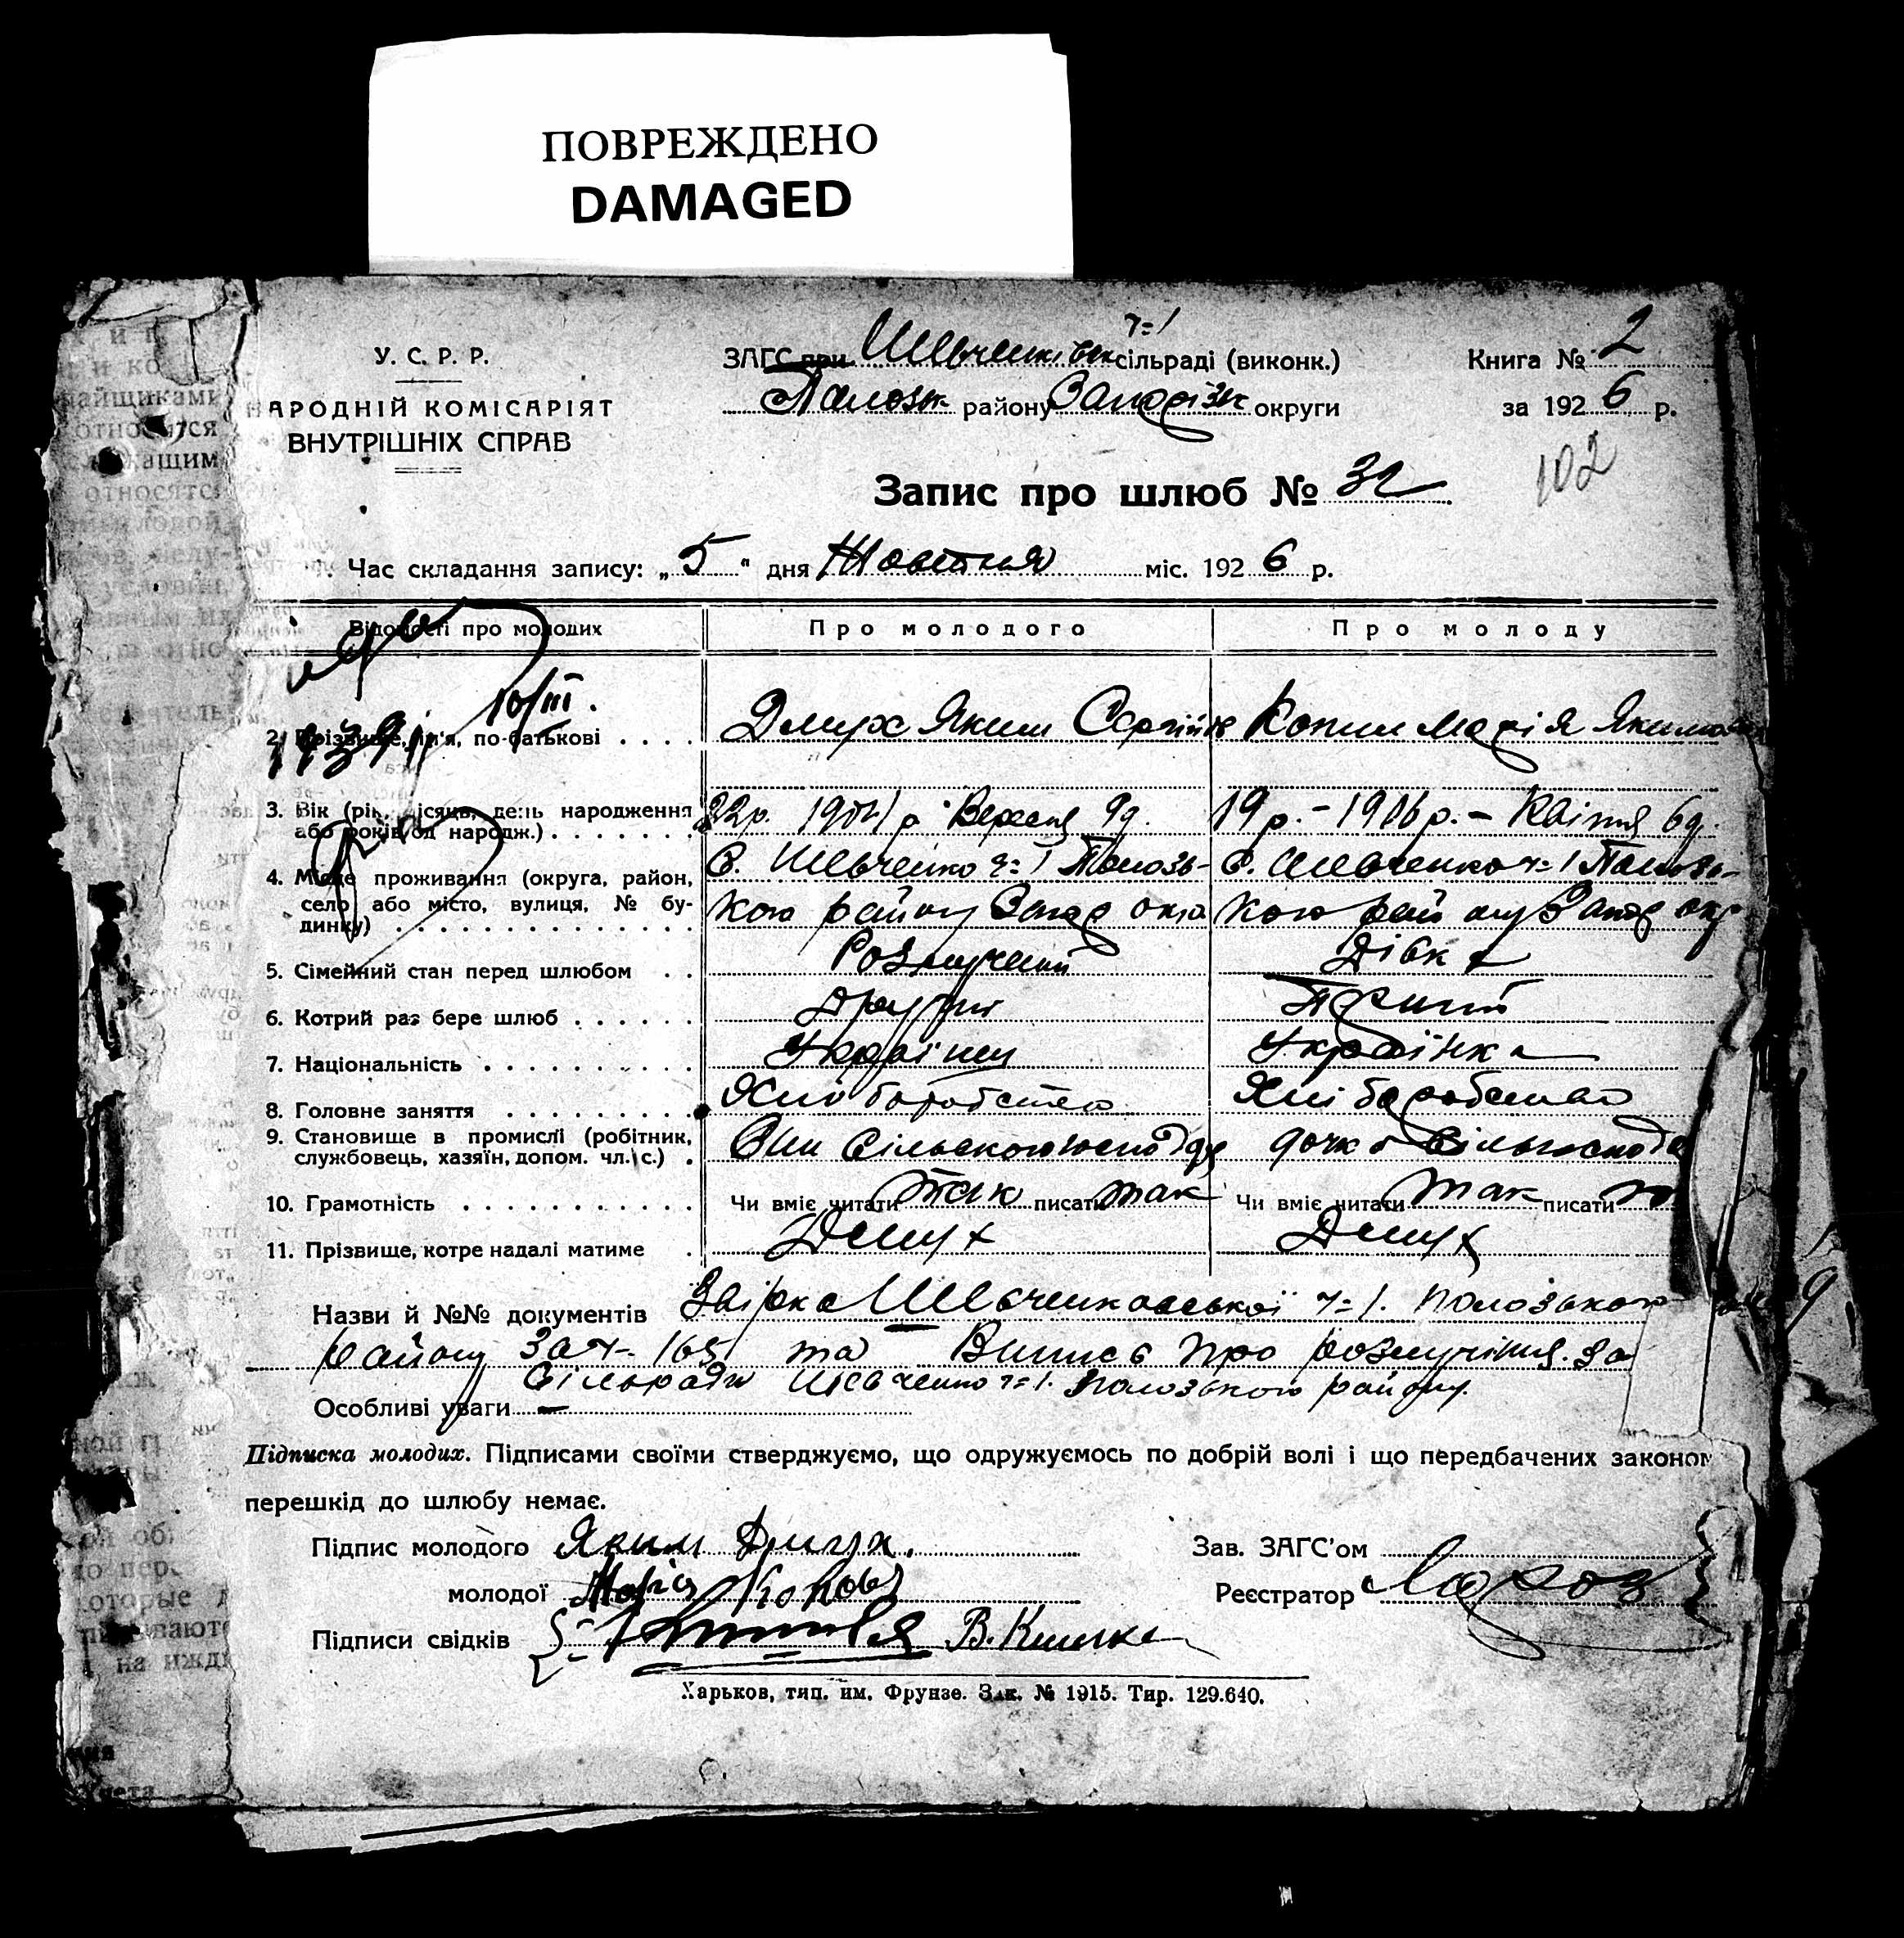 ПОВРЕЖДЕНО
DAMAGED
У. С. Р. Р.
НАРОДНІЙ КОМІСАРІЯТ
ВНУТРІШНІХ СПРАВ
ЗАГС при Шевченківськ ч=1 сільраді (виконк.)
Полозьк району Запорізьк округи
Книга № 2
за 1926 р.
102
Запис про шлюб № 32
Час складання запису: „5" дня Жовтня міс. 1926 р.
Відомості про молодих
Про молодого
Про молоду
10/III.
1939
2. Прізвище, ім'я, по-батькові . . . .
Дмух Яким Сергійов
Копил Марія Якимов
3. Вік (рік, місяць, день народження
або років од народж.) . . . . . . .
22р. 1904 р Вересня 9д.
19р. – 1906р. – Квітня 6д.
4. Місце проживання (округа, район,
село або місто, вулиця, № бу-
динку) . . . . . . . . . . . . . .
С. Шевченко ч=1 Полозь-
кого району Запор окр
С. Шевченко ч=1 Полозь-
кого району Запор окр
5. Сімейний стан перед шлюбом . .
Розлучений
Дівка
6. Котрий раз бере шлюб . . . . . .
Другий
Перший
7. Національність . . . . . . . . . .
Українец
Українка
8. Головне заняття . . . . . . . . .
Хліборобство
Хліборобство
9. Становище в промислі (робітник,
службовець, хазяїн, допом. чл. с.) .
Син сільського господаря
дочка сільгоспода
10. Грамотність . . . . . . . . . . .
Чи вміє читати так писати так
Чи вміє читати так писати
11. Прізвище, котре надалі матиме .
Дмух
Дмух
Назви й №№ документів Звірка Шевченковської ч=1. Полозького
району за ч- 165 та Випис про розлучіння за
Сільради Шевченко ч=1. Полозького району.
Особливі уваги —
Підписка молодих. Підписами своїми стверджуємо, що одружуємось по добрій волі і що передбачених законом
перешкід до шлюбу немає.
Підпис молодого Яким Дмух.
Зав. ЗАГС'ом
молодої Марія
Реєстратор
Підписи свідків
Харьков, тип. им. Фрунзе. Зак. № 1915. Тир. 129.640.